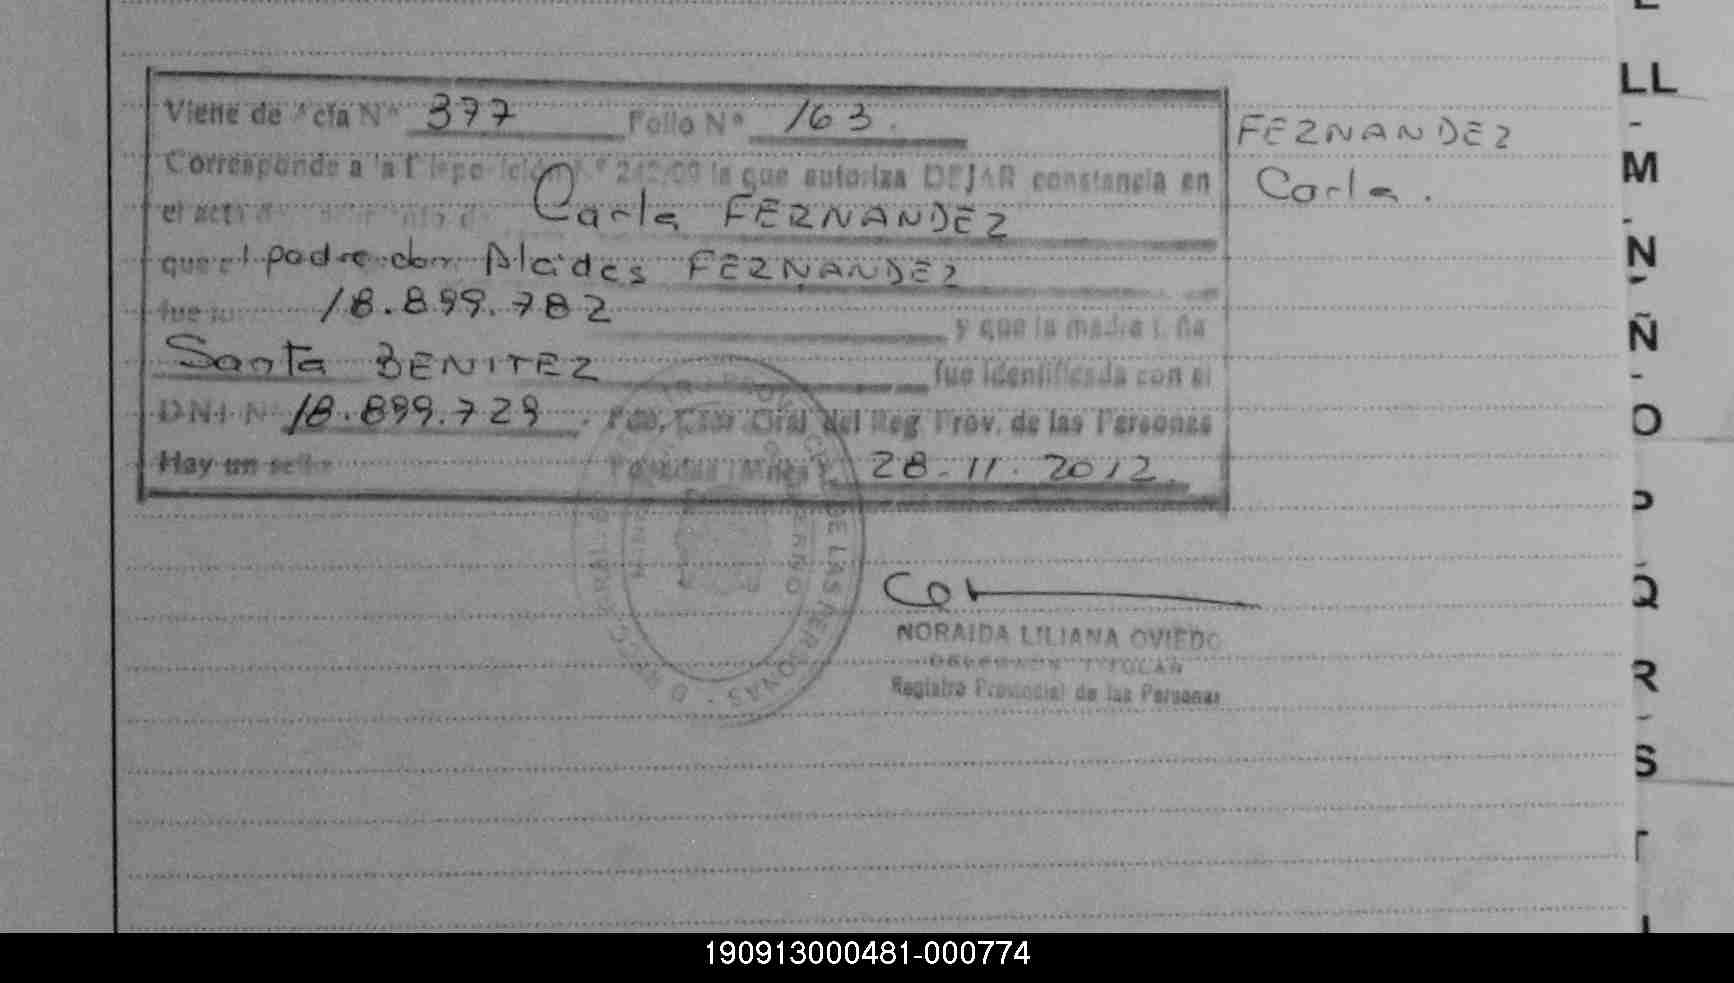 Viene de Acta Nº 377 Folio Nº 163.
Corresponde a la Disposición Nº 242/09 la que autoriza DEJAR constancia en
el acta de nacimiento de Carla FERNANDEZ
que el padre don Alcides FERNANDEZ
fue 18.899.782 y que la madre
Santa BENITEZ fue identificada con el
DNI Nº 18.899.729. Fdo. Gral del Reg Prov. de las Personas
Hay un sello 28-11-2012.
FERNANDEZ
Carla.
PROVINCIAL DE LAS PERSONAS
NORAIDA LILIANA OVIEDO
DELEGADA TITULAR
Registro Provincial de las Personas
LL
-
M
-
N
-
Ñ
-
O
-
P
-
Q
-
R
-
S
-
T
190913000481-000774